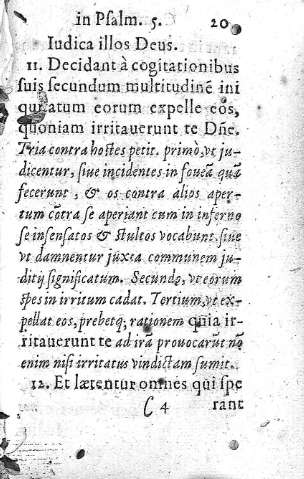 in Psalm. 5. 20
Iudica illos Deus.
11. Decidant à cogitationibus
suis secundum multitudinē ini
quitatum eorum expelle eos,
quoniam irritauerunt te Dn̄e.
Tria contra hostes petit. primò, vt ju-
dicentur, siue incidentes in foueā quā
fecerunt, & os contra alios aper-
tum cōtra se aperiant cum in inferno
se insensatos & stultos vocabunt, siue
vt damnentur juxta communem ju-
ditij significatum. Secundo, vt eorum
spes in irritum cadat. Tertium, vt ex-
pellat eos, prebetq; rationem quia ir-
ritauerunt te ad irā prouocarūt nō
enim nisi irritatus vindictam sumit.
12. Et lætentur omnes qui spe
C 4 rant